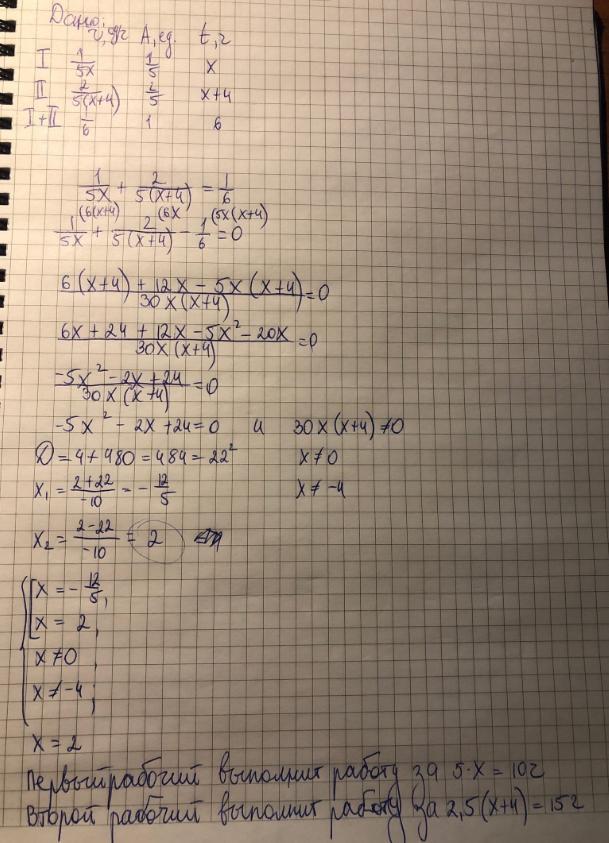 Дано:
v, д/г A, ед t, г
I 1/5x 1/5 x
II 2/5(x+4) 2/5 x+4
I+II 1/6 1 6
1/5x + 2/5(x+4) = 1/6
1/5x (6(x+4) + 2/5(x+4) (6x - 1/6 (5x(x+4) = 0
6(x+4) + 12x - 5x(x+4) / 30x(x+4) = 0
6x + 24 + 12x - 5x² - 20x / 30x(x+4) = 0
-5x² - 2x + 24 / 30x(x+4) = 0
-5x² - 2x + 24 = 0 и 30x(x+4) ≠ 0
D = 4 + 480 = 484 = 22² x ≠ 0
x₁ = 2+22/-10 = -12/5 x ≠ -4
x₂ = 2-22/-10 = 2
{[x = -12/5,
x = 2,
x ≠ 0,
x ≠ -4;
x = 2
Первый рабочий выполнит работу за 5·x = 10г
Второй рабочий выполнит работу за 2,5(x+4) = 15г